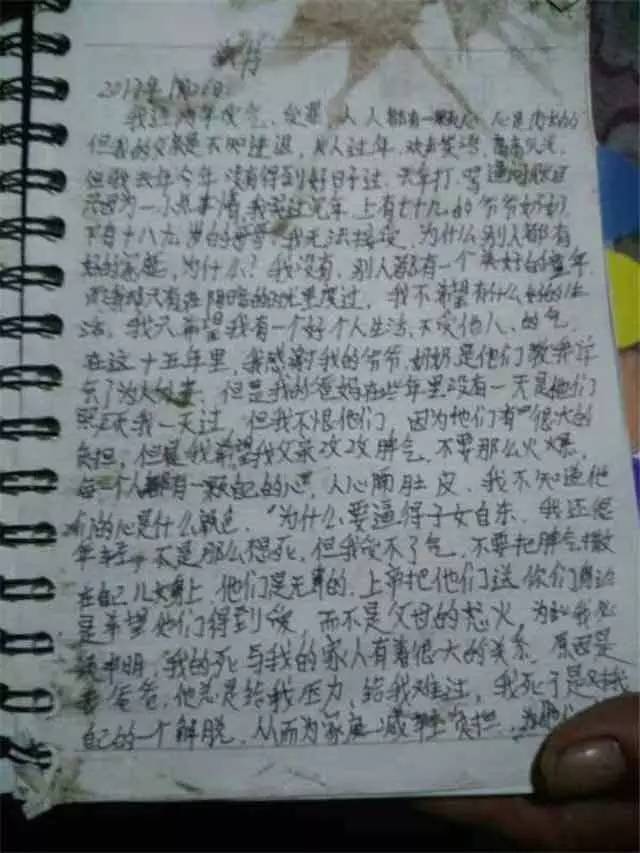 2017年1月26日
我这两年受气、受罪、人人都有一颗心，心是肉长的
但我的父亲是不知进退，别人过年，欢声笑语，高高兴兴，
但我去年今年没有得到好日子过，天天打、骂
只因为一小点事情，我 上有七十九的爷爷奶奶
下有十八九岁的哥哥，我无法接受，为什么别人都有
好的家庭，为什么？我没有，别人都有一个美好的童年
只有在阴暗的 里度过，我不希望有什么好的生
活，我只希望我有一个好个人生活，不受他人、的气
在这十五年里，我感谢我的爷爷，奶奶是他们教我学
会了为人处事，但是我的爸妈在些年里没有一天是他们
照顾我一天过，但我不恨他们，因为他们有很大的
负担，但是我希望我父亲改改脾气，不要那么火爆，
每一个人都有一颗自己的心，人心隔肚皮，我不知道他
们的心是什么颜色，为什么要逼得子女自杀，我还很
年轻，不是那么想死，但我受不了气，不要把脾气撒
在自己儿女身上，他们是无辜的，上帝把他们送你们身边
是希望他们得到爱，而不是父母的怒火，为此我
申明，我的死与我的家人有着很大的关系，原因是
我爸爸，他总是给我压力，给我难过，我死于是对我
自己的一个解脱，从而为家庭减轻负担，